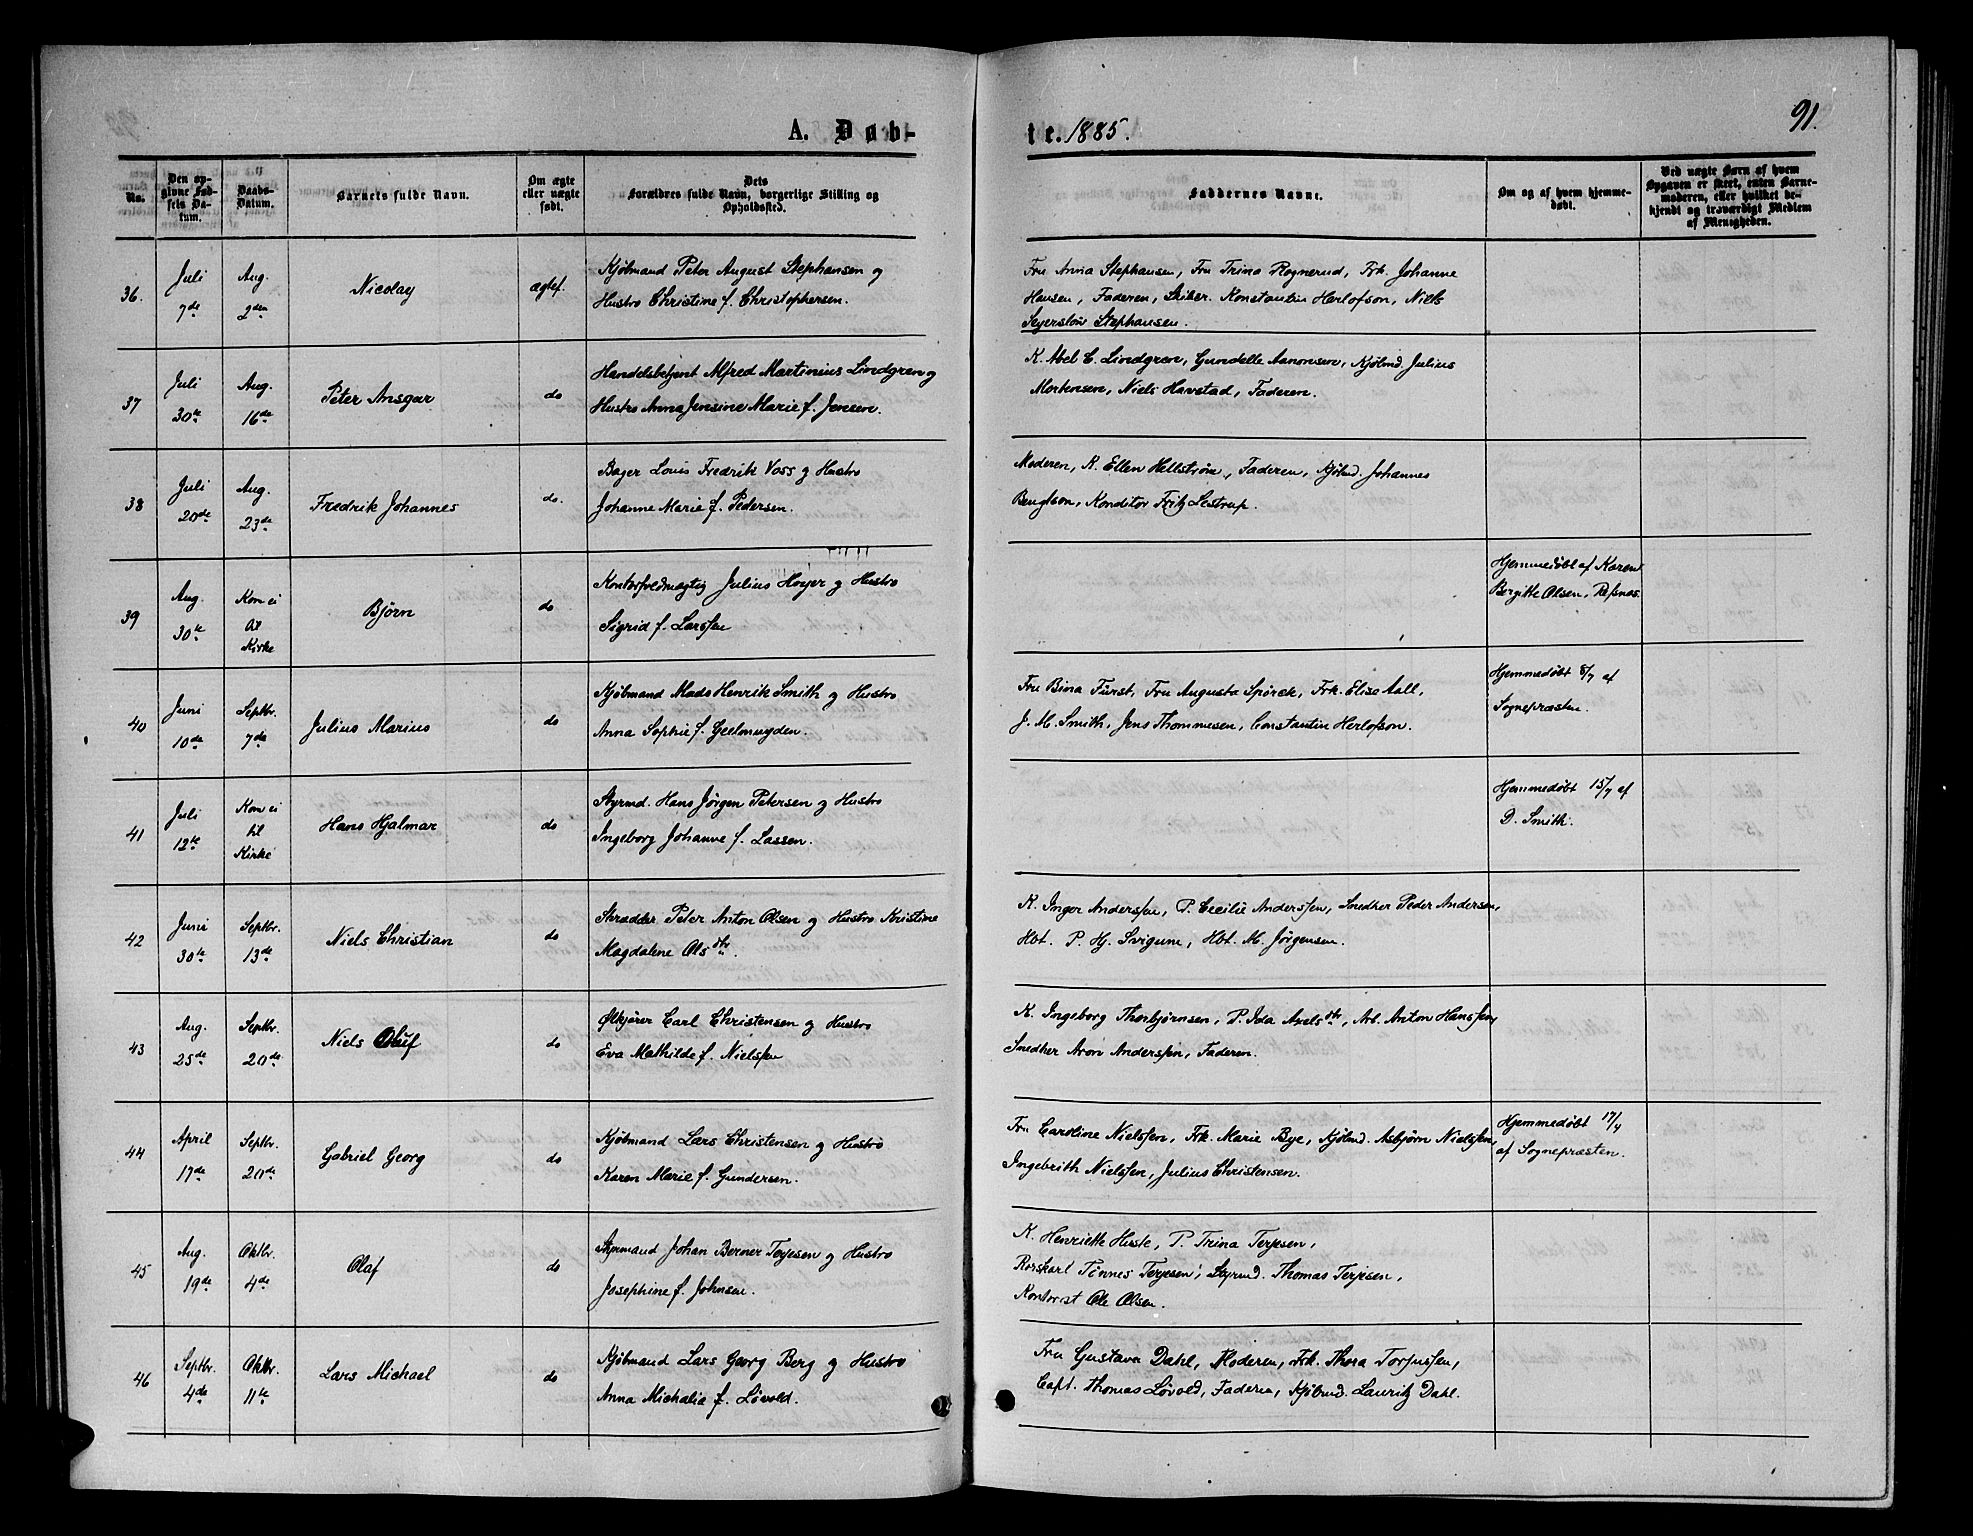 91.
A. Døb-
te. 1885.
No.
Den op-
givne Fød-
sels Da-
tum.
Daabs-
Datum.
Barnets fulde Navn.
Om ægte
eller uægte
født.
Dets
Forældres fulde Navn, borgerlige Stilling og
Opholdssted.
Faddernes Navne.
Om og af hvem hjemme-
døbt.
Ved uægte Børn af hvem
Opgaven er skeet, enten Barne-
moderen, eller hvilket be-
kjendt og troværdigt Medlem
af Menigheden.
36.
Juli
7de
Aug.
2den
Nicolay
ægtef.
Kjøbmand Peter August Stephansen og
Hustro Christine f. Christophersen.
Fru Anna Stephansen, Fru Trina Rognerud, Frk. Johanne
Hansen, Faderen, Skiber. Konstantin Herlofson, Niels
Segersløv Stephansen.
37
Juli
30te
Aug.
16de
Peter Ansgar
do
Handelsbetjent Alfred Martinius Lindgren og
Hustro Anna Jensine Marie f. Jensen.
K. Abel C. Lindgren, Gundelle Aanonsen, Kjøbmd. Julius
Mortensen, Niels Havstad, Faderen.
38
Juli
20de
Aug.
23de
Fredrik Johannes
do.
Bager Louis Fredrik Voss og Hustro
Johanne Marie f. Pedersen.
Moderen, K. Ellen Hellstrøm, Faderen, Kjøbmd. Johannes
Bengtson, Konditor Fritz Lestrup.
39
Aug.
30te
Kom ei
til
Kirke
Bjørn
do
Kontorfuldmægtig Julius Hoyer og Hustro
Sigrid f. Larssen
Hjemmedøbt af Karen
Bergitte Olsen, Refsnæs.
40
Juni
10de
Septbr.
7de
Julius Marius
do
Kjøbmand Mads Henrik Smith og Hustro
Anna Sophie f. Geelmuyden.
Fru Bina Fürst, Fru Augusta Spørck, Frk. Elise Aall,
J. M. Smith, Jens Thommesen, Constantin Herlofson.
Hjemmedøbt 8/7 af
Sognepræsten.
41
Juli
12te
Kom ei
til
Kirke
Hans Hjalmar
do
Styrmd. Hans Jørgen Petersen og Hustro
Ingeborg Johanne f. Lassen.
Hjemmedøbt 15/7 af
D. Smith.
42
Juni
30te
Septbr.
13de
Niels Christian
do
Skrædder Peter Anton Olsen og Hustro Kristine
Magdalene Olsdtr.
K. Inger Anderssen, P. Cecilie Anderssen, Snedker Peder Andersen,
Hbt. P. Hj. Svigum, Hbt. M. Jørgensen.
43
Aug.
25de
Septbr.
20de
Niels Oluf
do
Ølkjører Carl Christensen og Hustro
Eva Mathilde f. Nielssen
K. Ingeborg Thorbjørnsen, P. Ida Axelsdtr, Arb. Anton Hanssen,
Snedker Aron Anderssen, Faderen.
44
April
17de
Septbr.
20de
Gabriel Georg
do
Kjøbmand Lars Christensen og Hustro
Karen Marie f. Gundersen.
Fru Caroline Nielssen, Frk. Marie Bye, Kjøbmd. Asbjørn Nielssen,
Ingebrith Nielssen, Julius Christensen.
Hjemmedøbt 17/4
af Sognepræsten.
45
Aug.
19de
Oktbr.
4de
Olaf
do
Styrmand Johan Berner Terjesen og Hustro
Josephine f. Johnsen.
K. Henriette Huste, P. Trina Terjesen,
Rorskarl Tønnes Terjesen, Styrmd. Thomas Terjesen,
Kontorist Ole Olsen.
46
Septbr.
4de
Oktbr.
11te
Lars Michael
do
Kjøbmand Lars Georg Berg og Hustro
Anna Michalia f. Løvold.
Fru Gustava Dahl, Moderen, Frk. Thora Torjussen,
Capt. Thomas Løvold, Faderen, Kjøbmd. Lauritz Dahl.